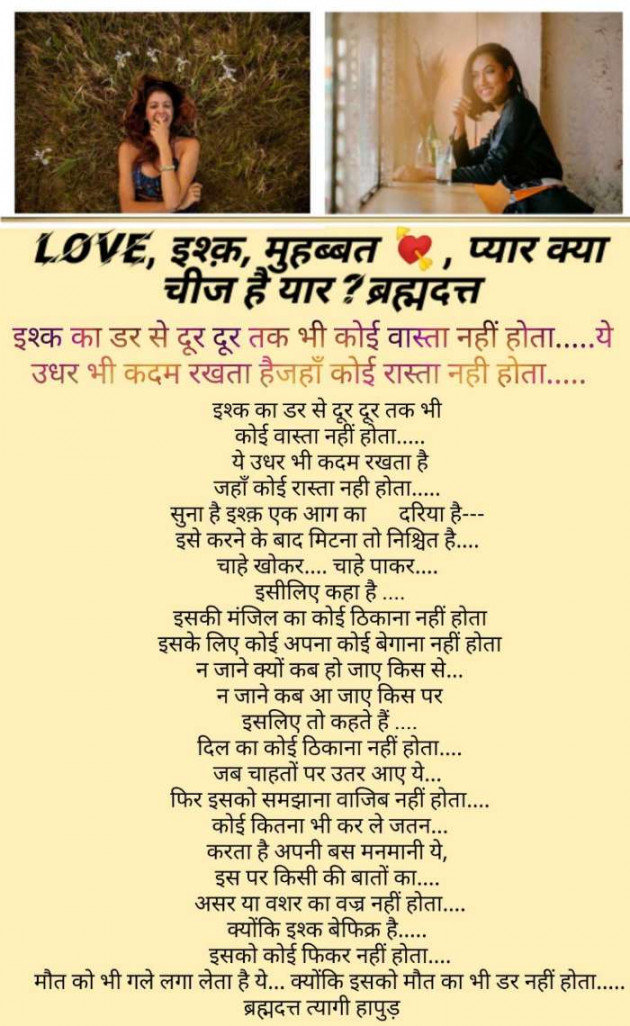 LOVE, इश्क़, मुहब्बत 💘, प्यार क्या
चीज है यार ? ब्रह्मदत्त
इश्क का डर से दूर दूर तक भी कोई वास्ता नहीं होता.....ये
उधर भी कदम रखता हैजहाँ कोई रास्ता नही होता.....
इश्क का डर से दूर दूर तक भी
कोई वास्ता नहीं होता.....
ये उधर भी कदम रखता है
जहाँ कोई रास्ता नही होता.....
सुना है इश्क़ एक आग का दरिया है---
इसे करने के बाद मिटना तो निश्चित है....
चाहे खोकर.... चाहे पाकर....
इसीलिए कहा है ....
इसकी मंजिल का कोई ठिकाना नहीं होता
इसके लिए कोई अपना कोई बेगाना नहीं होता
न जाने क्यों कब हो जाए किस से...
न जाने कब आ जाए किस पर
इसलिए तो कहते हैं ....
दिल का कोई ठिकाना नहीं होता....
जब चाहतों पर उतर आए ये...
फिर इसको समझाना वाजिब नहीं होता....
कोई कितना भी कर ले जतन...
करता है अपनी बस मनमानी ये,
इस पर किसी की बातों का....
असर या वशर का वज्र नहीं होता....
क्योंकि इश्क बेफिक्र है.....
इसको कोई फिकर नहीं होता....
मौत को भी गले लगा लेता है ये... क्योंकि इसको मौत का भी डर नहीं होता.....
ब्रह्मदत्त त्यागी हापुड़